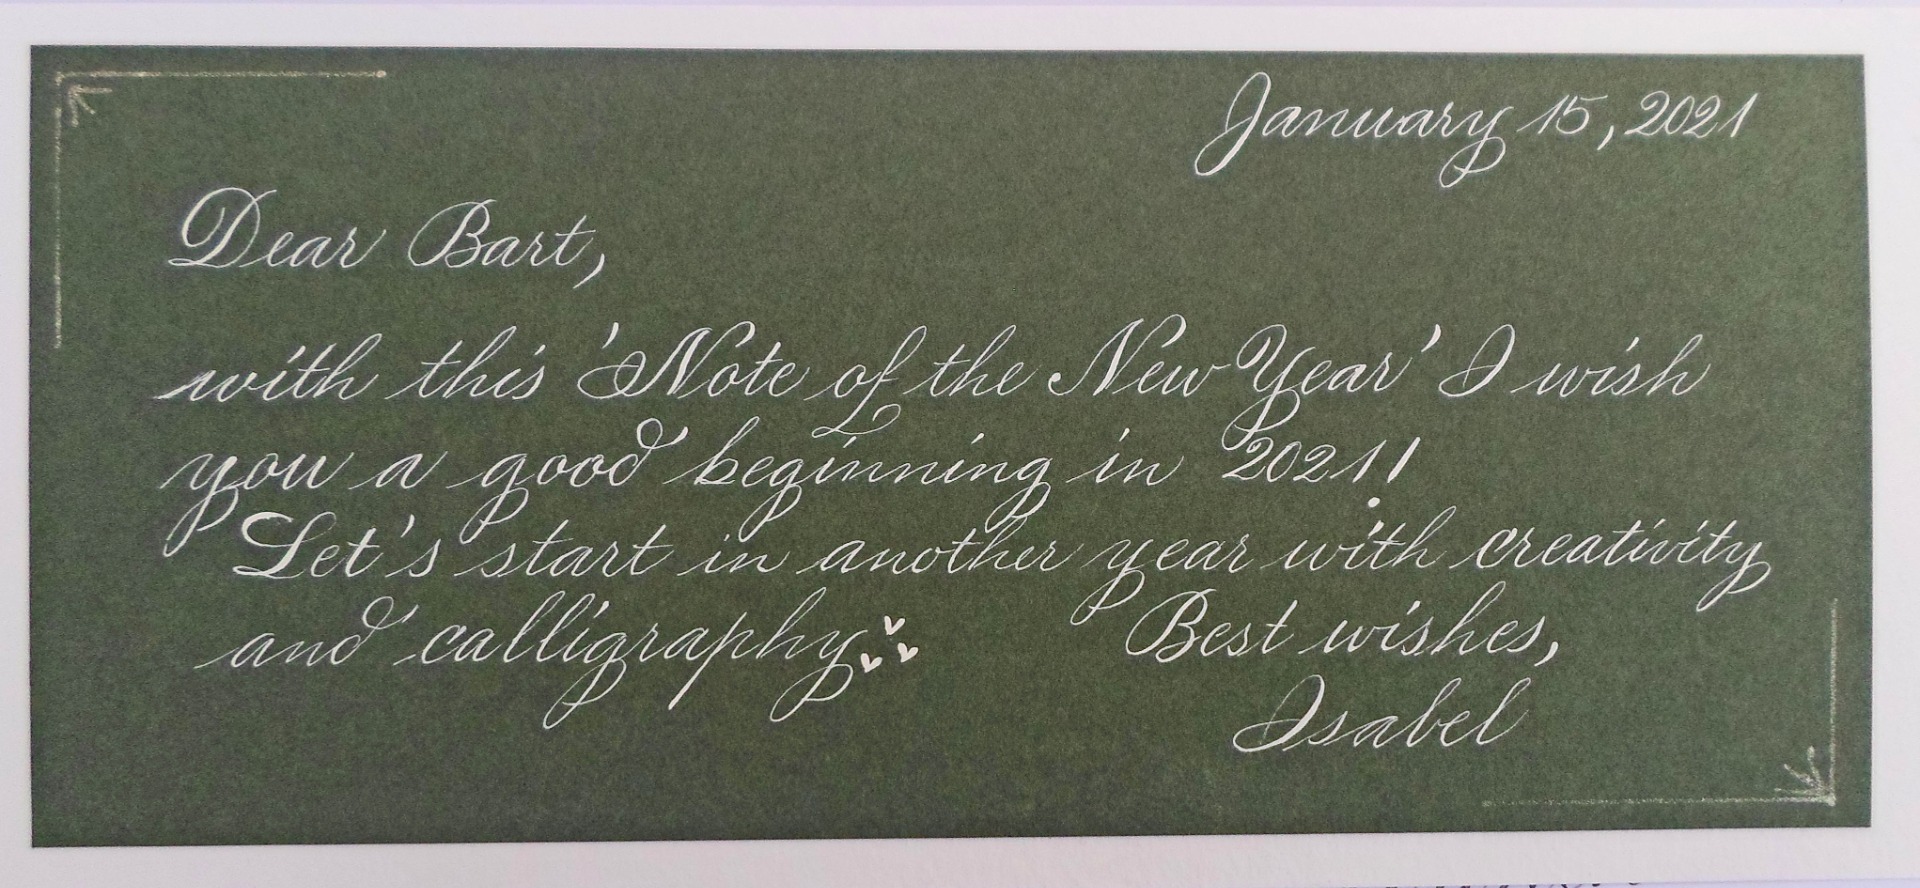 January 15, 2021
Dear Bart,
with this 'Note of the New Year' I wish
you a good beginning in 2021!
Let's start in another year with creativity
and calligraphy
Best wishes,
Isabel